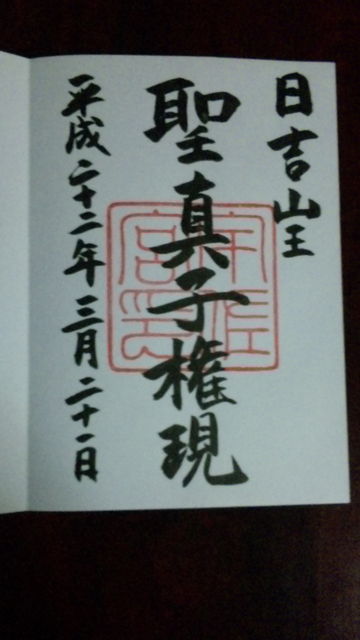 日吉山王
聖真子権現
平成二十二年三月二十一日
宇佐宮印